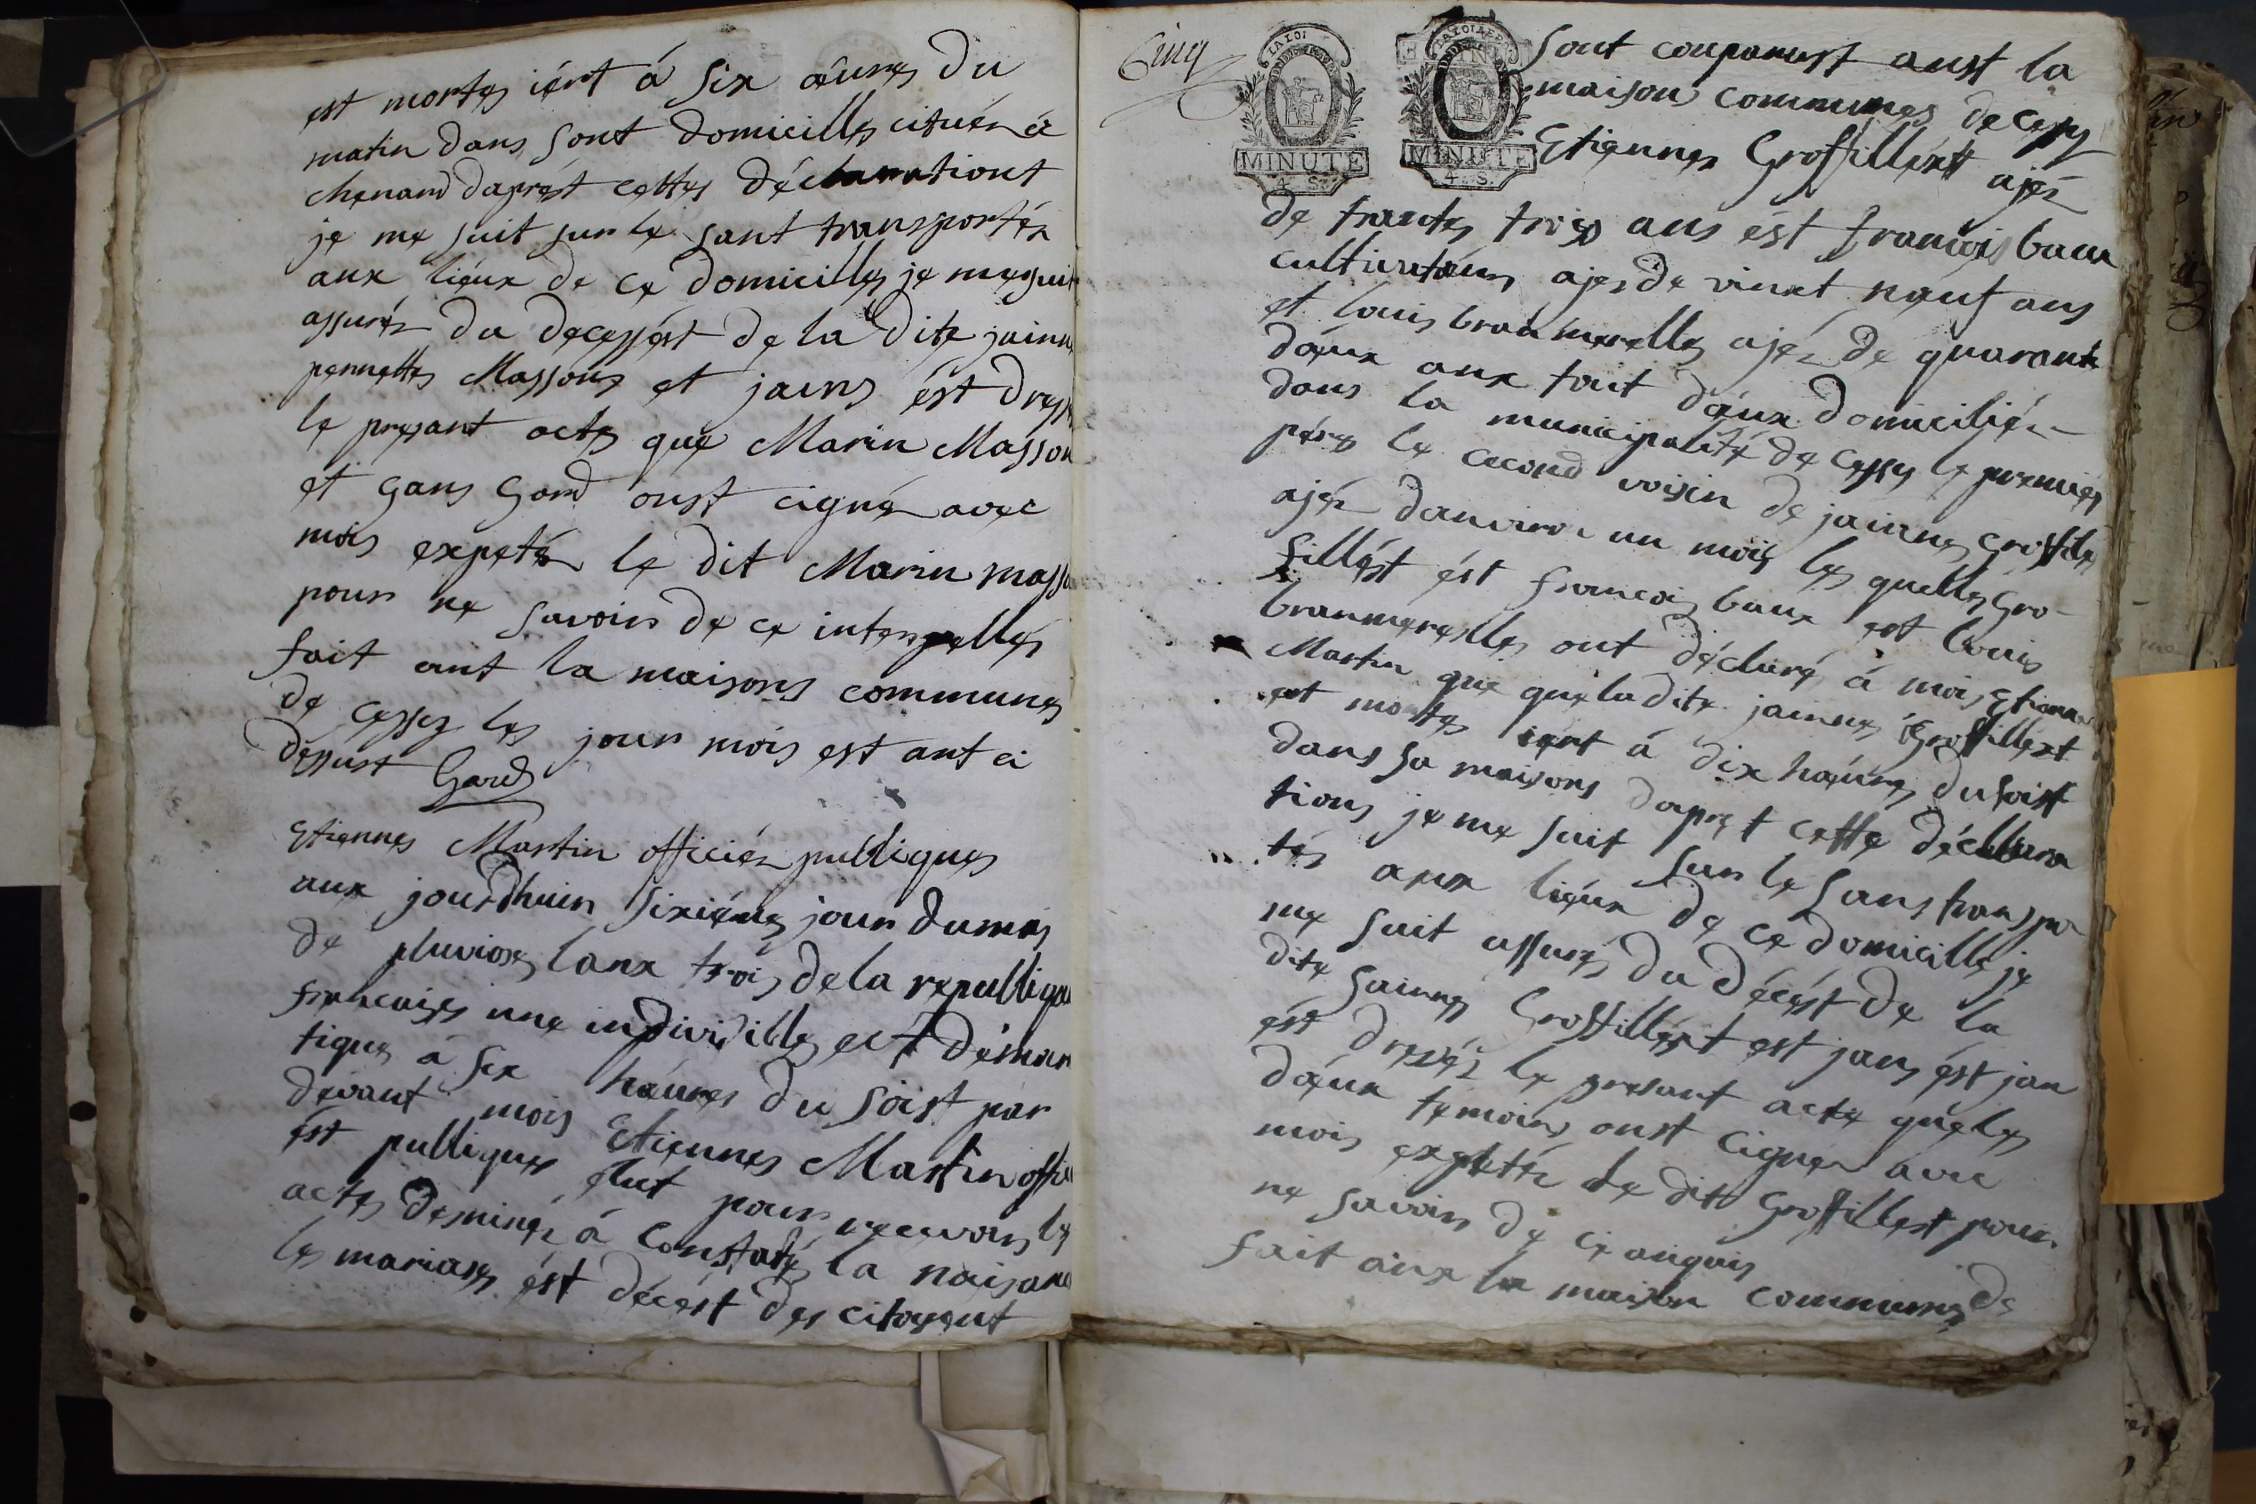 est mortes iért á six aûres du
matin dans sont domicilles cituér á
chenaud daprést cettes déclarationt
je me suit sur le sant transportér
aux liéux de ce domicilles je me suit
assurér du decessést de la dite jainne
pernettes Massons et jains ést dressér
le presant actes que Marin Masson
et gans gard onst cignér avec
mois expetér le dit Marin masson
pour ne savoirs de ce interpellés
fait ant la maisons communes
de cessez les jour mois est ant ci
dessust Gard
Etiennes Martin officiér publiques
aux jourdhuin sixiémes jour du mois
de pluvioses lanx trois de la republique
francaises une indivisilles ect démocra
tiques á six háures du soist par
devant mois Etiennes Martin offici
ést publiques élut pours recevoirs les
actes desminér á constatés la naisance
les mariases ést décést des citoyent
Cinq
LA LOI
MINUTE
4. S.
LA LOI
MINUTE
4. S.
Sont conparust anst la
maison communes de cessy
Etiennes Grossilléxtt ajér
de trantes troiss ans ést francois baux
cultivatéurs ajér de vinxt nauf ans
et louis branmerelles ajér de quarante
dáux anx tout dáux domiciliér
dans la municipalité de cessy le premiés
péres le cecond voisin de jainnes Grossile
ajér danviron un mois les quelles gro-
ssillést ést francois baux est louis
branmerelles ont déclaré á mois Etienne
Martin que que la dite jainnes Grossillext
est mortes iert á dix háures du soist
dans sa maisons daprest cette déclara
tions je me suit sur le sans transpor
tés aux liéux de ce domicille je
me suit assurés du décést de la
dite jainnes Grossilléxt est jans ést jan
ést dressér le presant acte que les
dáux temoins onst cignér avec
mois expétér le dit Grossillest pour
ne savoirs de ce anquis
fait anx la maison communes de